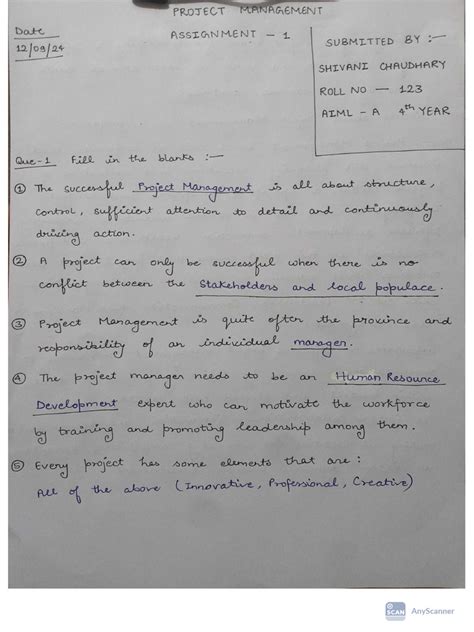 PROJECT MANAGEMENT
Date
12/09/24
ASSIGNMENT - 1
SUBMITTED BY :-
SHIVANI CHAUDHARY
ROLL NO - 123
AIML - A 4th YEAR
Que-1 Fill in the blanks :-
① The successful Project Management is all about structure,
control, sufficient attention to detail and continuously
driving action.
② A project can only be successful when there is no
conflict between the Stakeholders and local populace.
③ Project Management is quite often the province and
responsibility of an individual manager.
④ The project manager needs to be an Human Resource
Development expert who can motivate the workforce
by training and promoting leadership among them.
⑤ Every project has some elements that are :
All of the above (Innovative, Professional, Creative)
SCAN AnyScanner